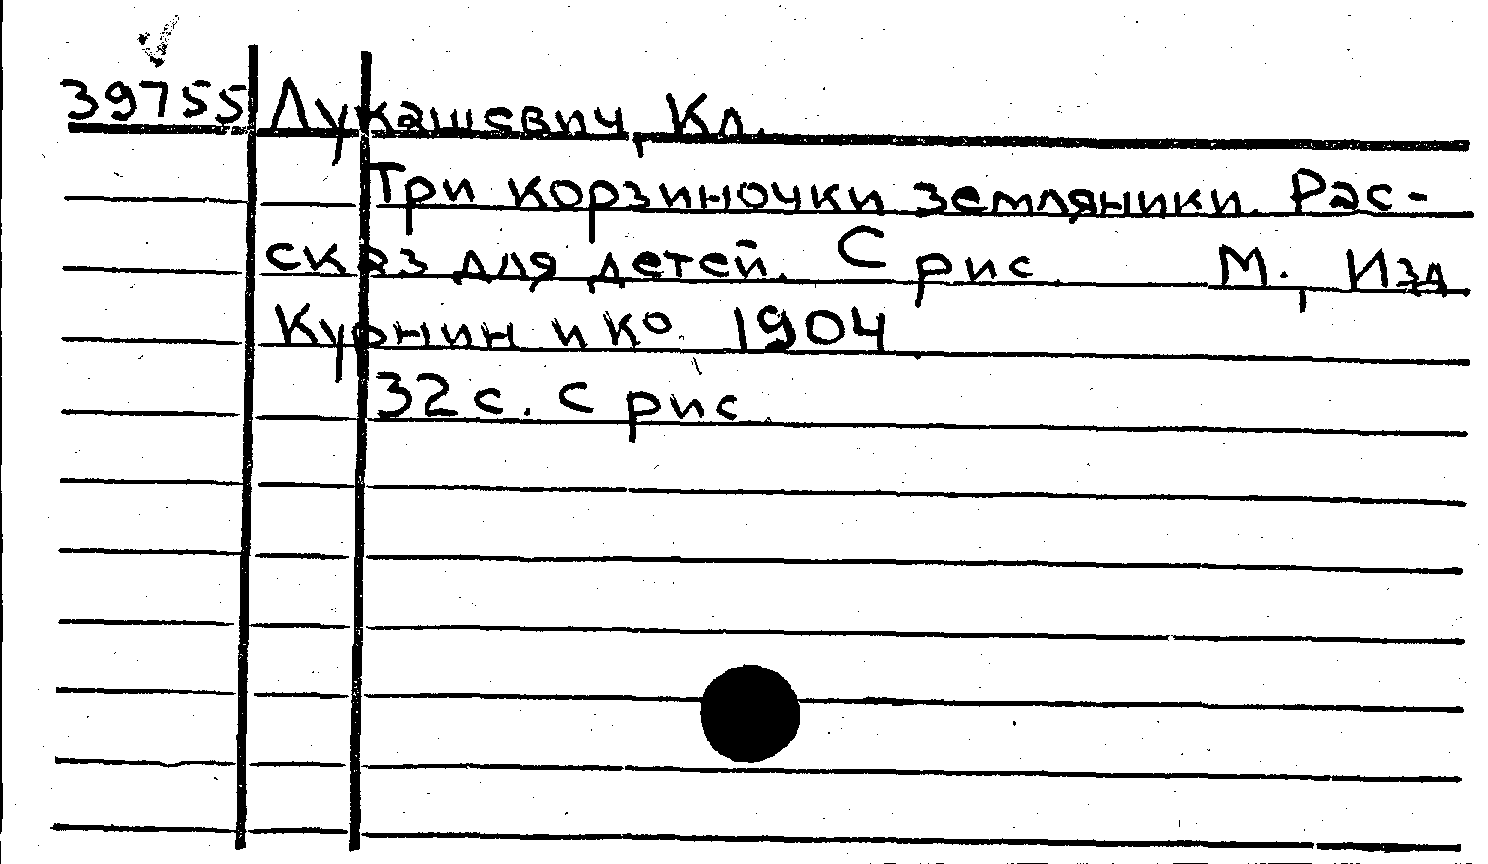 39755 Лукашевич, Кл.
Три корзиночки земляники. Рас-
сказ для детей. С рис. М., Изд
Курнин и ко 1904
32 с. С рис.